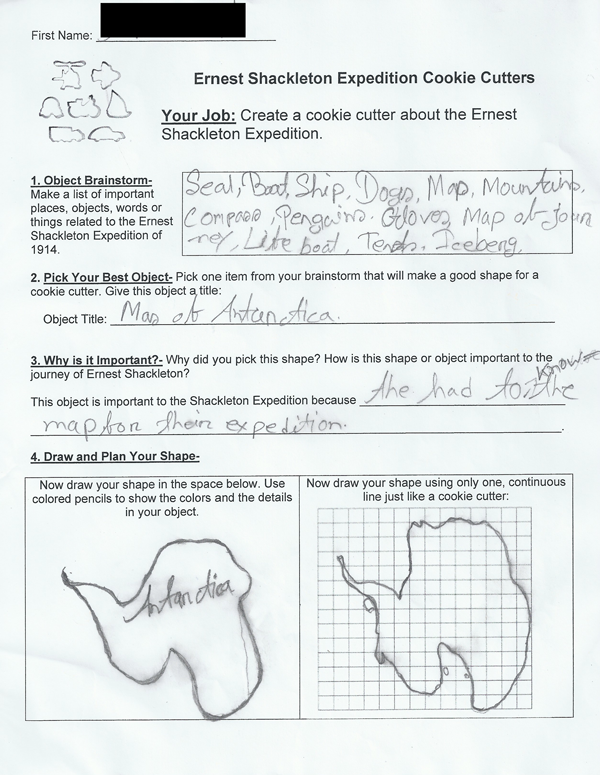 First Name:
Ernest Shackleton Expedition Cookie Cutters
Your Job: Create a cookie cutter about the Ernest
Shackleton Expedition.
1. Object Brainstorm-
Make a list of important
places, objects, words or
things related to the Ernest
Shackleton Expedition of
1914.
Seal, Boat, Ship, Dogs, Map, Mountains,
Compass, Penguins. Gloves, Map of jour
ney, Life boat, Tents. Iceberg.
2. Pick Your Best Object- Pick one item from your brainstorm that will make a good shape for a
cookie cutter. Give this object a title:
Object Title: Map of Antarctica.
3. Why is it Important?- Why did you pick this shape? How is this shape or object important to the
journey of Ernest Shackleton?
know
This object is important to the Shackleton Expedition because the had to the
map for their expedition.
4. Draw and Plan Your Shape-
Now draw your shape in the space below. Use
colored pencils to show the colors and the details
in your object.
Antarctica
Now draw your shape using only one, continuous
line just like a cookie cutter: